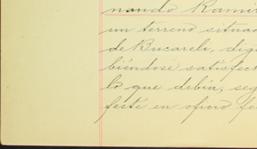 nando Ramír
un terreno situad
de Bucareli, dig
biéndose satisfect
lo que debía, seg
festé en oficio fe